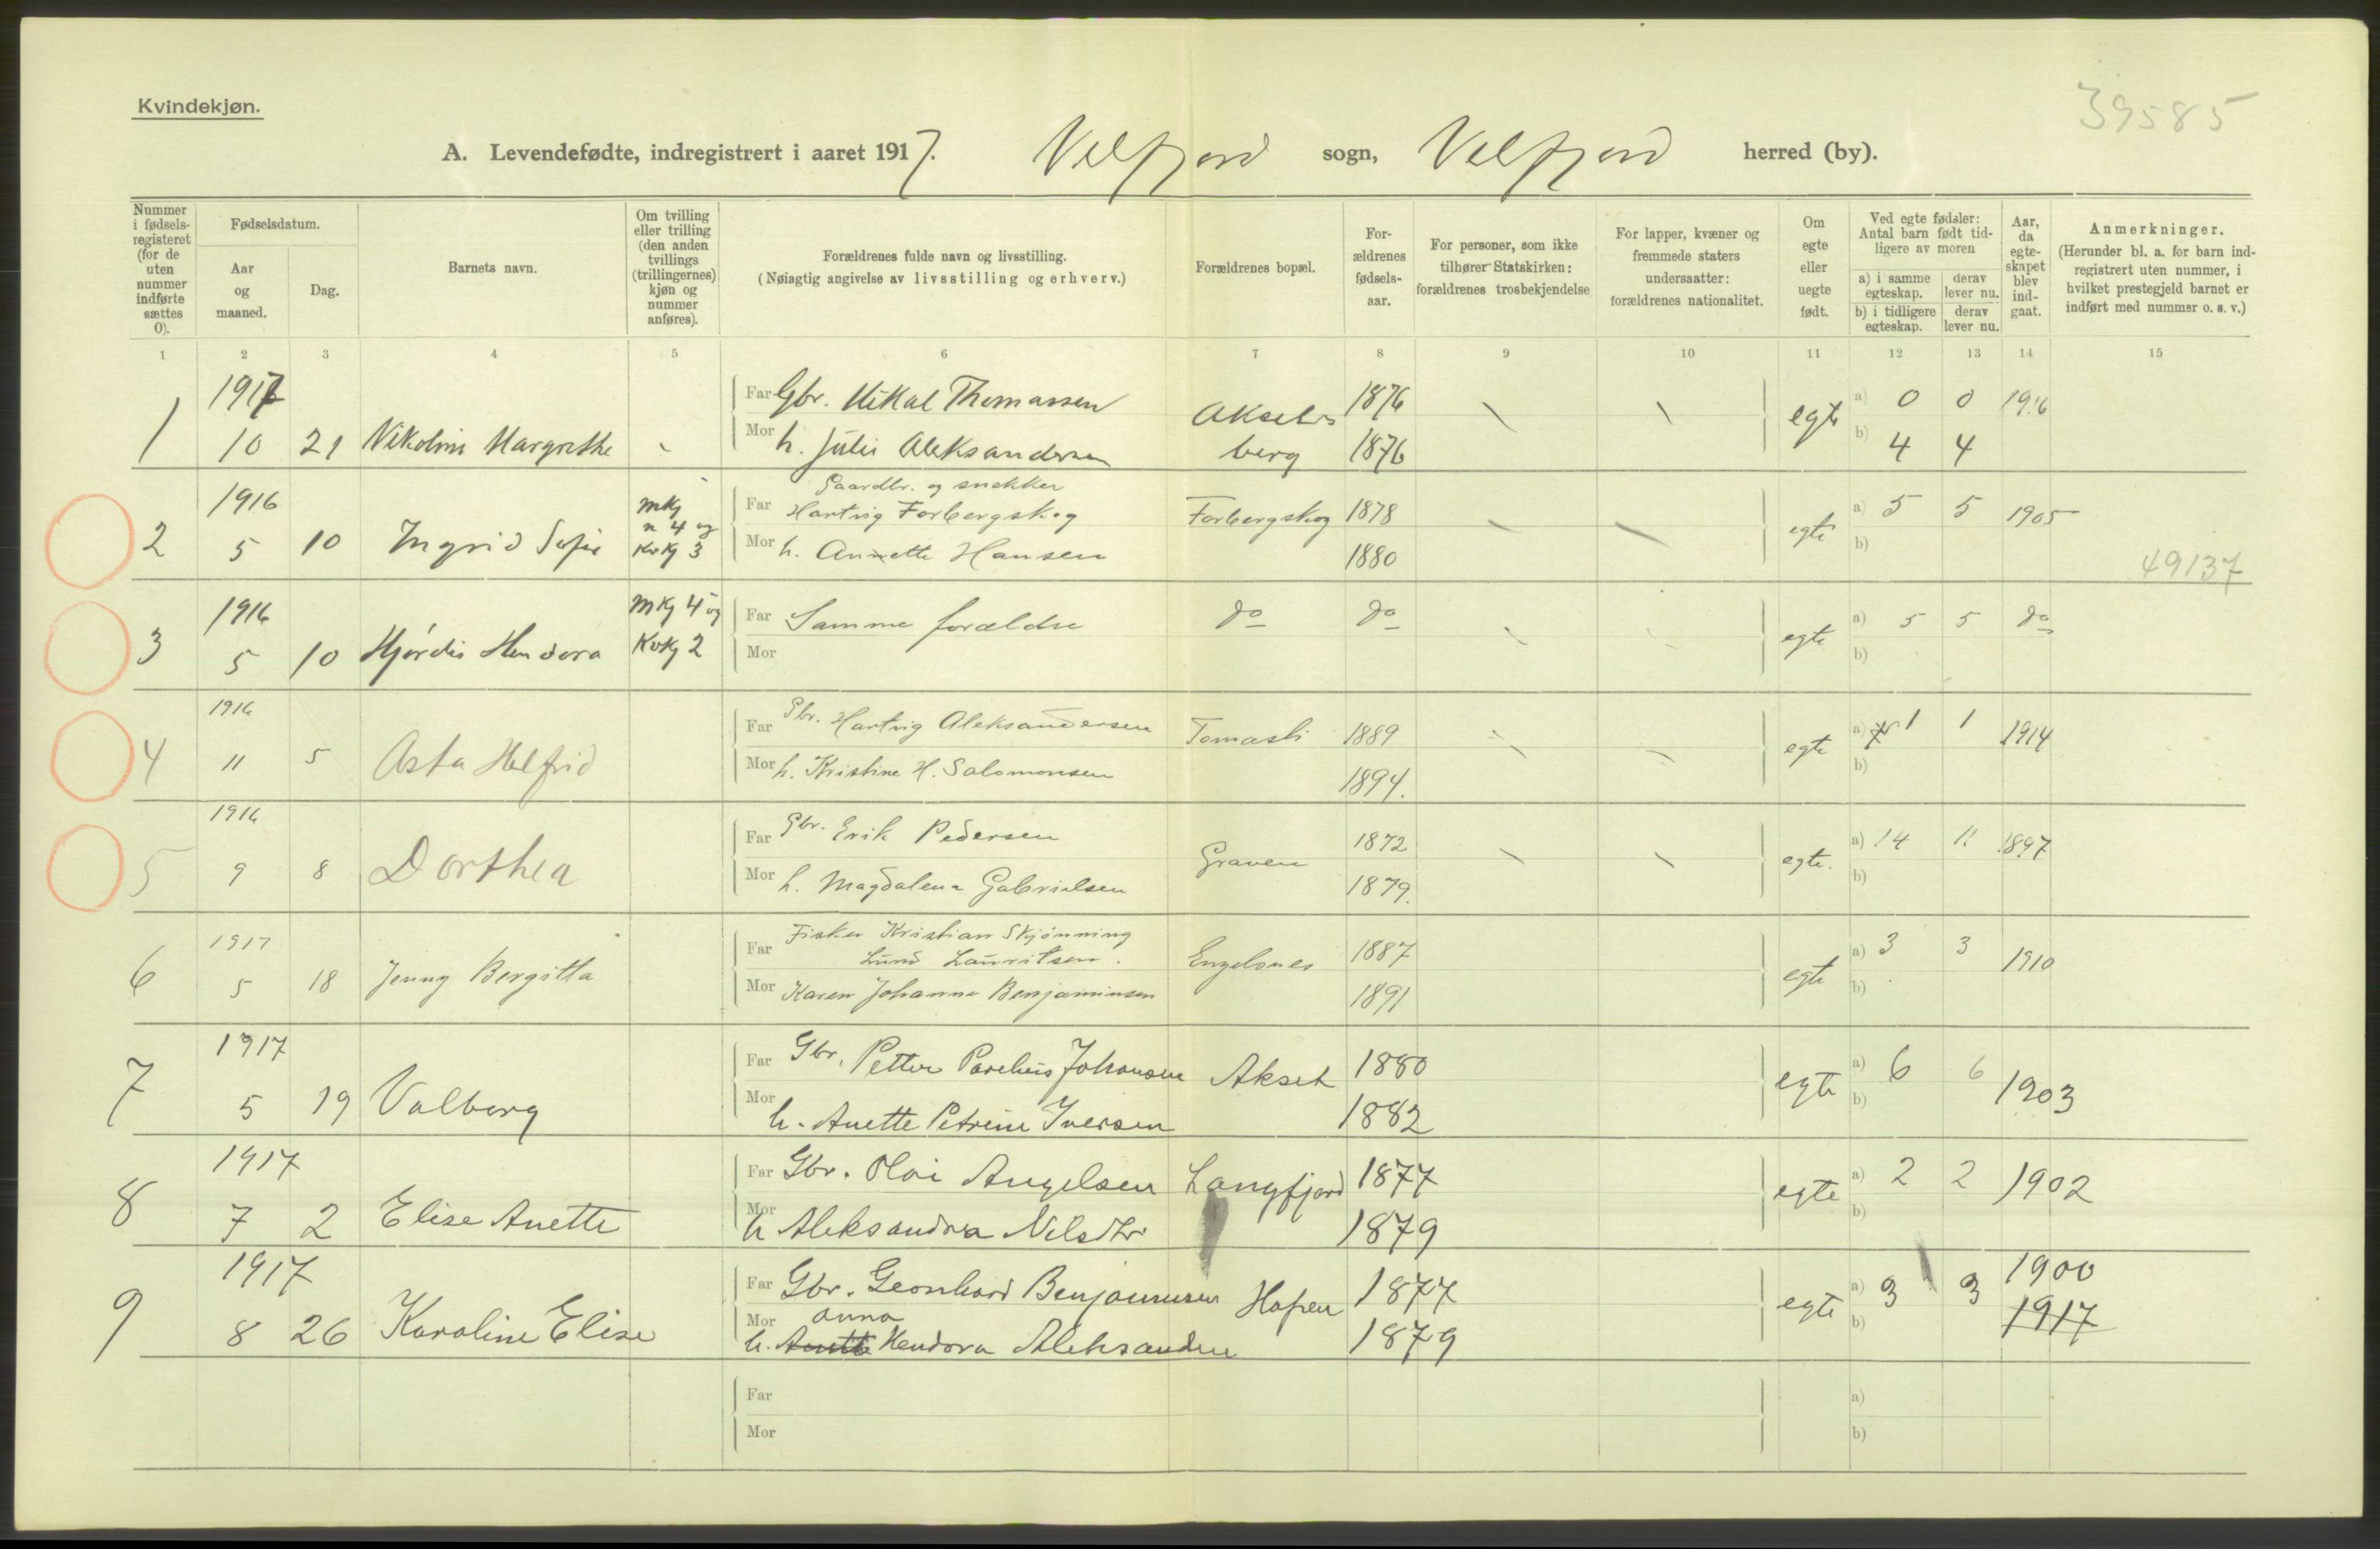 Kvindekjøn.
39585
A. Levendefødte, indregistrert i aaret 1917. Velfjord sogn, Velfjord herred (by).
Nummer i fødsels-registeret (for de uten nummer indførte sættes 0).
Fødselsdatum.
Aar og maaned.
Dag.
Barnets navn.
Om tvilling eller trilling (den anden tvillings (trillingernes) kjøn og nummer anføres).
Forældrenes fulde navn og livsstilling.
(Nøiagtig angivelse av livsstilling og erhverv.)
Forældrenes bopæl.
For-ældrenes fødsels-aar.
For personer, som ikke tilhører Statskirken: forældrenes trosbekjendelse
For lapper, kvæner og fremmede staters undersaatter: forældrenes nationalitet.
Om egte eller uegte født.
Ved egte fødsler: Antal barn født tid-ligere av moren
a) i samme egteskap.
derav lever nu.
b) i tidligere egteskap.
derav lever nu.
Aar, da egte-skapet blev ind-gaat.
Anmerkninger.
(Herunder bl. a. for barn ind-registrert uten nummer, i hvilket prestegjeld barnet er indført med nummer o. s. v.)
1 2 3 4 5 6 7 8 9 10 11 12 13 14 15
1917 Far Gbr. Mikal Thomassen Aksels 1876 a) 0 0 1916
1 10 21 Nikoline Margrethe Mor h. Julie Aleksandersen berg 1876 egte b) 4 4
Gaardbr. og snekker
1916 mkj Far Hartvig Forbergskog Forbergskog 1878 a) 5 5 1905
n 4 og
2 5 10 Ingrid Sofie Kvkj 3 Mor h. Annette Hansen 1880 egte b)
49137
1916 mkj 4 og Far Samme forældre do do a) 5 5 do
3 5 10 Hjørdis Hendora Kvkj 2 Mor egte b)
1916 Far Gbr. Hartvig Aleksandersen Tomasli 1889 a) 1 1 1914
4 11 5 Asta Helfrid Mor h. Kristine H. Salomonsen 1894. egte b)
1916 Far Gbr. Erik Pedersen 1872 a) 14 11 1897
5 9 8 Dorthea Mor h. Magdalena Gabrielsen Graven 1879. egte. b)
1917 Far Fisker Kristian Skjønning
Lund Lauritsen. Engelsnes 1887 a) 3 3 1910
6 5 18 Jenny Bergitta Mor Karen Johanna Benjaminsen 1891 egte b)
1917 Far Gbr. Petter Parelius Johansen Akset 1880 a) 6 6 1903
7 5 19 Valborg Mor h. Anette Petrine Iversen 1882 egte b)
1917 Far Gbr. Olai Angelsen Langfjord 1877 a) 2 2 1902
8 7 2 Elise Anette Mor h Aleksandra Nilsdtr 1879 egte b)
1917 Far Gbr. Leonhard Benjaminsen Hopen 1877 a) 3 3 1900
anna
9 8 26 Karoline Elise Mor h. Anette Hendora Aleksanders 1879 egte b) 1917
Far a)
Mor b)